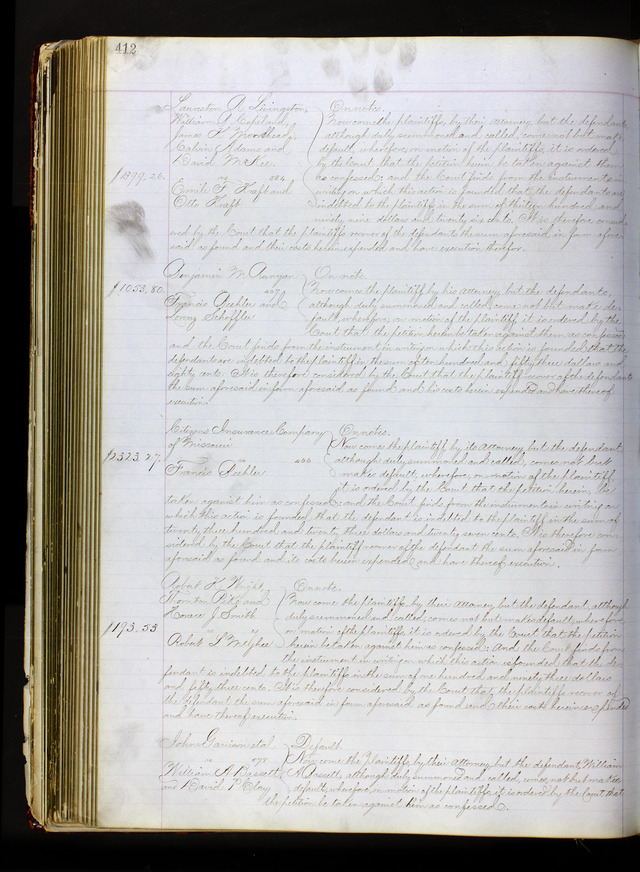 412
Launston A. Livingston, On note.
William G. Copeland, Now come the plaintiffs, by their attorney, but the defendants
James H. Woodhead, although duly summoned and called, come not but make
Calvin Adams and default, wherefore, on motion of the plaintiffs, it is ordered
David McKee. by the Court that the petition herein be taken against them
$1399.26. vs as confessed; and the Court finds from the instrument in
Emile F. Haft and writing on which this action is founded, that the defendants are
Otto Haft indebted to the plaintiffs in the sum of thirteen hundred and
ninety nine dollars and twenty six cents. It is therefore consid-
ered by the Court that the plaintiffs recover of the defendants the sum aforesaid in form afore-
said as found and their costs herein expended and have execution therefor.
Benjamin W. On note.
$1053.80. vs Now comes the plaintiff by his attorney, but the defendants
Francis Beehler and although duly summoned and called, come not but make de-
Lorenz Schoffler fault, wherefore, on motion of the plaintiff it is ordered by the
Court that the petition herein be taken against them as confessed
and the Court finds from the instrument in writing on which this action is founded, that the
defendants are indebted to the plaintiff in the sum of ten hundred and fifty three dollars and
eighty cents. It is therefore considered by the Court that the plaintiff recover of the defendants
the sum aforesaid in form aforesaid as found and his costs herein expended and have thereof
execution.
Citizens Insurance Company On note.
of Missouri Now comes the plaintiff by its attorney, but the defendant,
$2323.27. vs although duly summoned and called, comes not but
Francis Beehler makes default wherefore, on motion of the plaintiff
it is ordered by the Court that the petition herein, be
taken against him as confessed; and the Court finds from the instrument in writing on
which this action is founded that the defendant is indebted to the plaintiff in the sum of
twenty three hundred and twenty three dollars and twenty seven cents. It is therefore con-
sidered by the Court that the plaintiff recover of the defendant the sum aforesaid in form
aforesaid as found and its costs herein expended and have thereof execution.
Robert K. Wright, On note.
Thornton and Now come the plaintiffs by their attorney but the defendant, although
Horace J. Smith duly summoned and called, comes not but makes default wherefore,
$193.53 vs on motion of the plaintiffs it is ordered by the Court that the petition
Robert S. McGhee herein be taken against him as confessed: And the Court finds from
the instrument in writing on which this action is founded, that the de-
fendant is indebted to the plaintiffs in the sum of one hundred and ninety three dollars
and fifty three cents. It is therefore considered by the Court that the plaintiffs recover of
the defendant the sum aforesaid in form aforesaid as found and their costs herein expended
and have thereof execution.
John Garrison et al. Default.
vs Now come the Plaintiffs by their attorney but the defendant, William
William A. Bassett although duly summoned and called, comes not but makes
and David P. Clay default, wherefore, on motion of the plaintiffs it is ordered by the Court that
the petition be taken against him as confessed.